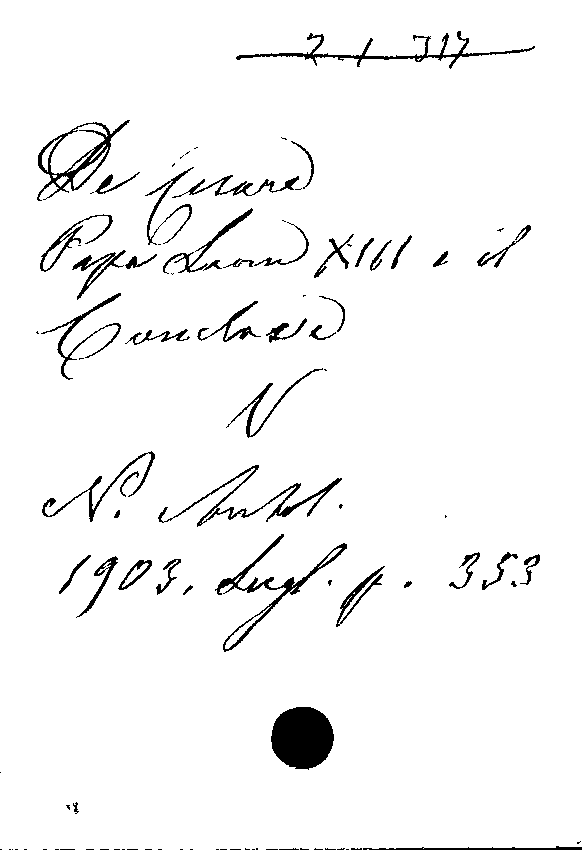 2. 1. 317
De Cesare
Papa Leone XIII e il
Conclave
V
N. Antol.
1903. Lugl. p. 353